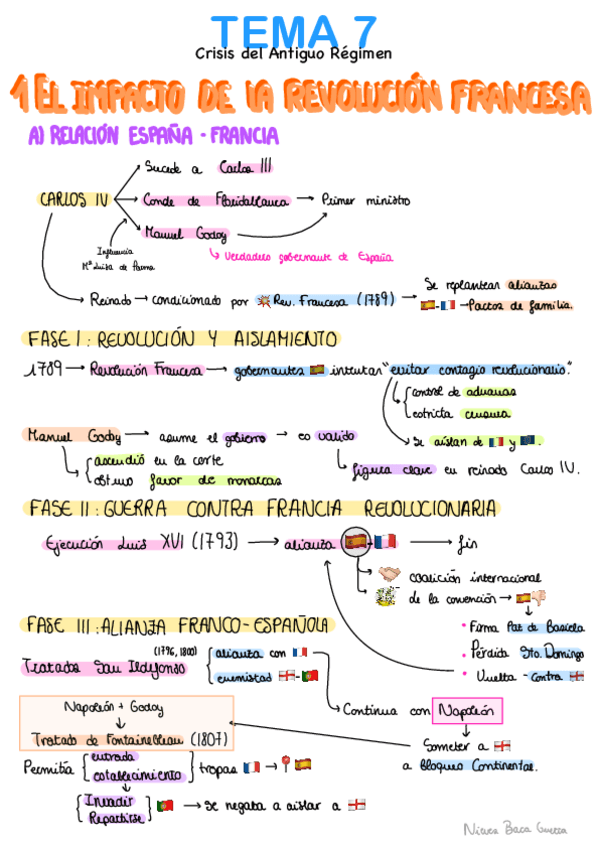 TEMA 7
Crisis del Antiguo Régimen
1 EL IMPACTO DE LA REVOLUCIÓN FRANCESA
A) RELACIÓN ESPAÑA - FRANCIA
Sucede a Carlos III
CARLOS IV
Conde de Floridablanca → Primer ministro
Manuel Godoy
Influencia
Mª Luisa de Parma
Verdadero gobernante de España
Reinado → condicionado por Rev. Francesa (1789)
Se replantean alianzas
- → Pactos de familia.
FASE I: REVOLUCIÓN Y AISLAMIENTO
1789 → Revolución Francesa → gobernantes intentan "evitar contagio revolucionario."
control de aduanas
estricta censura
Se aíslan de y
Manuel Godoy → asume el gobierno → es valido
ascendió en la corte
obtuvo favor de monarcas
figura clave en reinado Carlos IV.
FASE II: GUERRA CONTRA FRANCIA REVOLUCIONARIA
Ejecución Luis XVI (1793) → alianza - → fin
coalición internacional
G. de la convención →
Firma Paz de Basilea
Pérdida Sto. Domingo
Vuelta - contra
FASE III: ALIANZA FRANCO-ESPAÑOLA
(1796, 1800)
Tratados San Ildefonso
alianza con
enemistad -
Continua con Napoleón
Napoleón + Godoy
Tratado de Fontainebleau (1807)
Someter a
a bloqueo Continental.
Permitía
entrada
establecimiento
tropas →
Invadir
Repartirse
→ se negaba a aislar a